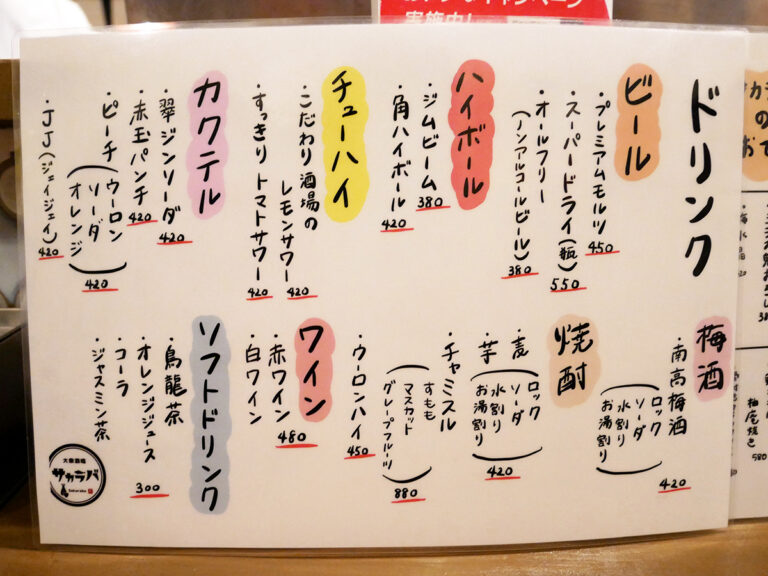 実施中!
ドリンク
ビール
・プレミアムモルツ
450
・スーパードライ(瓶)
550
・オールフリー
(ノンアルコールビール)
380
ハイボール
・ジムビーム
380
・角ハイボール
420
チューハイ
・こだわり酒場の
レモンサワー
420
・すっきりトマトサワー
420
カクテル
・翠ジンソーダ
420
・赤玉パンチ
420
・ピーチ
(ウーロン
ソーダ
オレンジ)
420
・JJ(ジェイジェイ)
420
梅酒
・南高梅酒
420
(ロック
ソーダ
水割り
お湯割り)
焼酎
・麦
・芋
(ロック
ソーダ
水割り
お湯割り)
420
・チャミスル
(すもも
マスカット
グレープフルーツ)
880
・ウーロンハイ
450
ワイン
・赤ワイン
・白ワイン
480
ソフトドリンク
・烏龍茶
・オレンジジュース
・コーラ
・ジャスミン茶
300
大衆酒場
サカラバ
Sakaraba
580